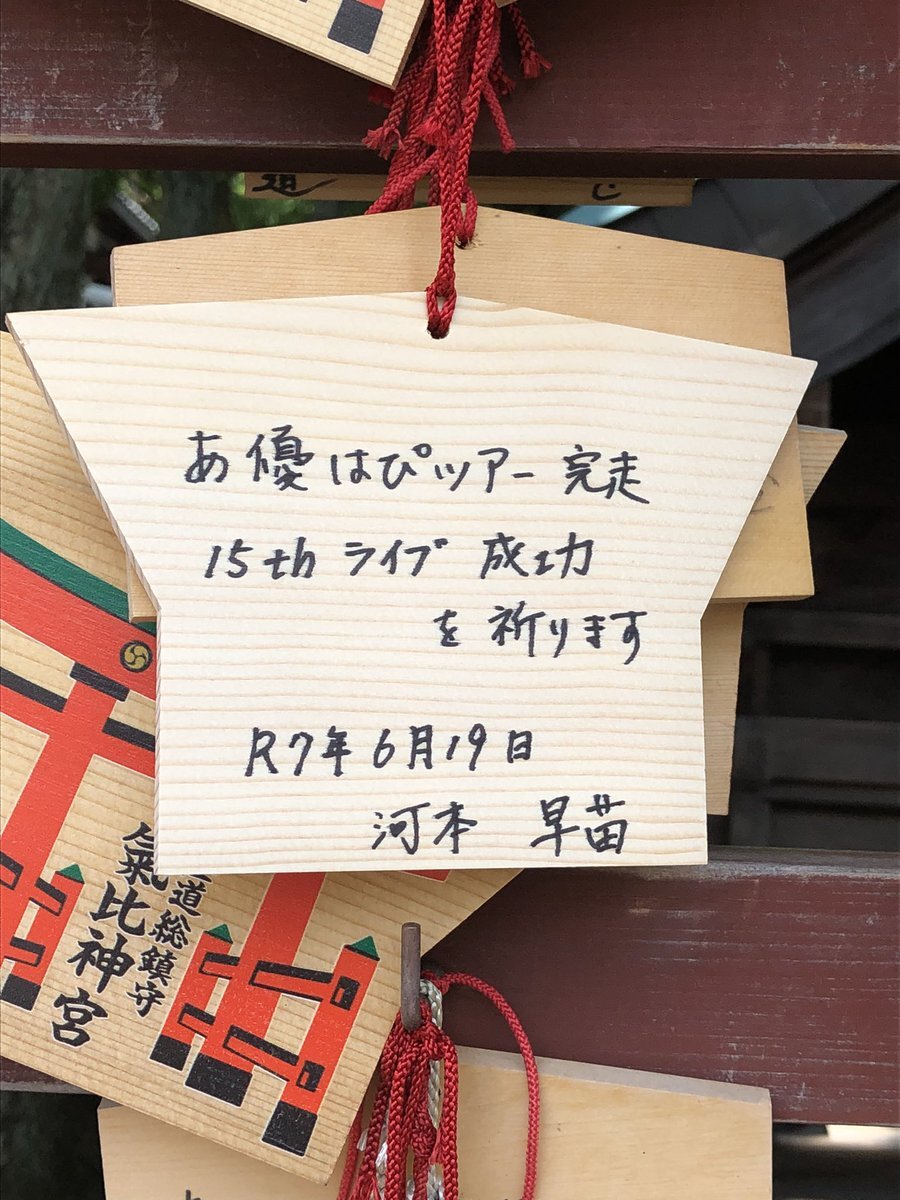 あ優はぴツアー完走
15th ライブ 成功
を祈ります
R7年6月19日
河本 早苗
道総鎮守
氣比神宮